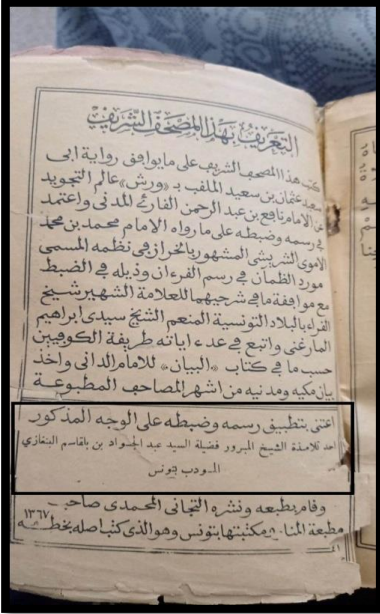 التعريف بهذا المصحف الشريف
كتب هذا المصحف الشريف على ما يوافق رواية ابى
سعيد عثمان بن سعيد الملقب بـ «ورش» عالم التجويد
عن الامام نافع بن عبد الرحمن القارئ المدنى واعتمد
فى رسمه وضبطه على ما رواه الامام محمد بن محمد
الاموى الشريشى المشهور بالخراز فى نظمه المسمى
مورد الظمان فى رسم القرءان وذيله فى الضبط
مع موافقة ما فى شرحيهما للعلامة الشهير شيخ
القراء بالبلاد التونسية المنعم الشيخ سيدى ابراهيم
المارغنى واتبع فى عدد اياته طريقة الكوفيين
حسب ما فى كتاب «البيان» للامام الدانى واخذ
بيان مكيه ومدنيه من اشهر المصاحف المطبوعة
اعتنى بتطبيق رسمه وضبطه على الوجه المذكور
احد تلامذة الشيخ المبرور فضيلة السيد عبد الجواد بن بلقاسم البنغازي
المؤدب بتونس
وقام بطبعه ونشره التجانى المحمدى صاحب
مطبعة المنار ومكتبتها بتونس وهو الذى كتب اصله بخطه
١٣٦٧
٤١